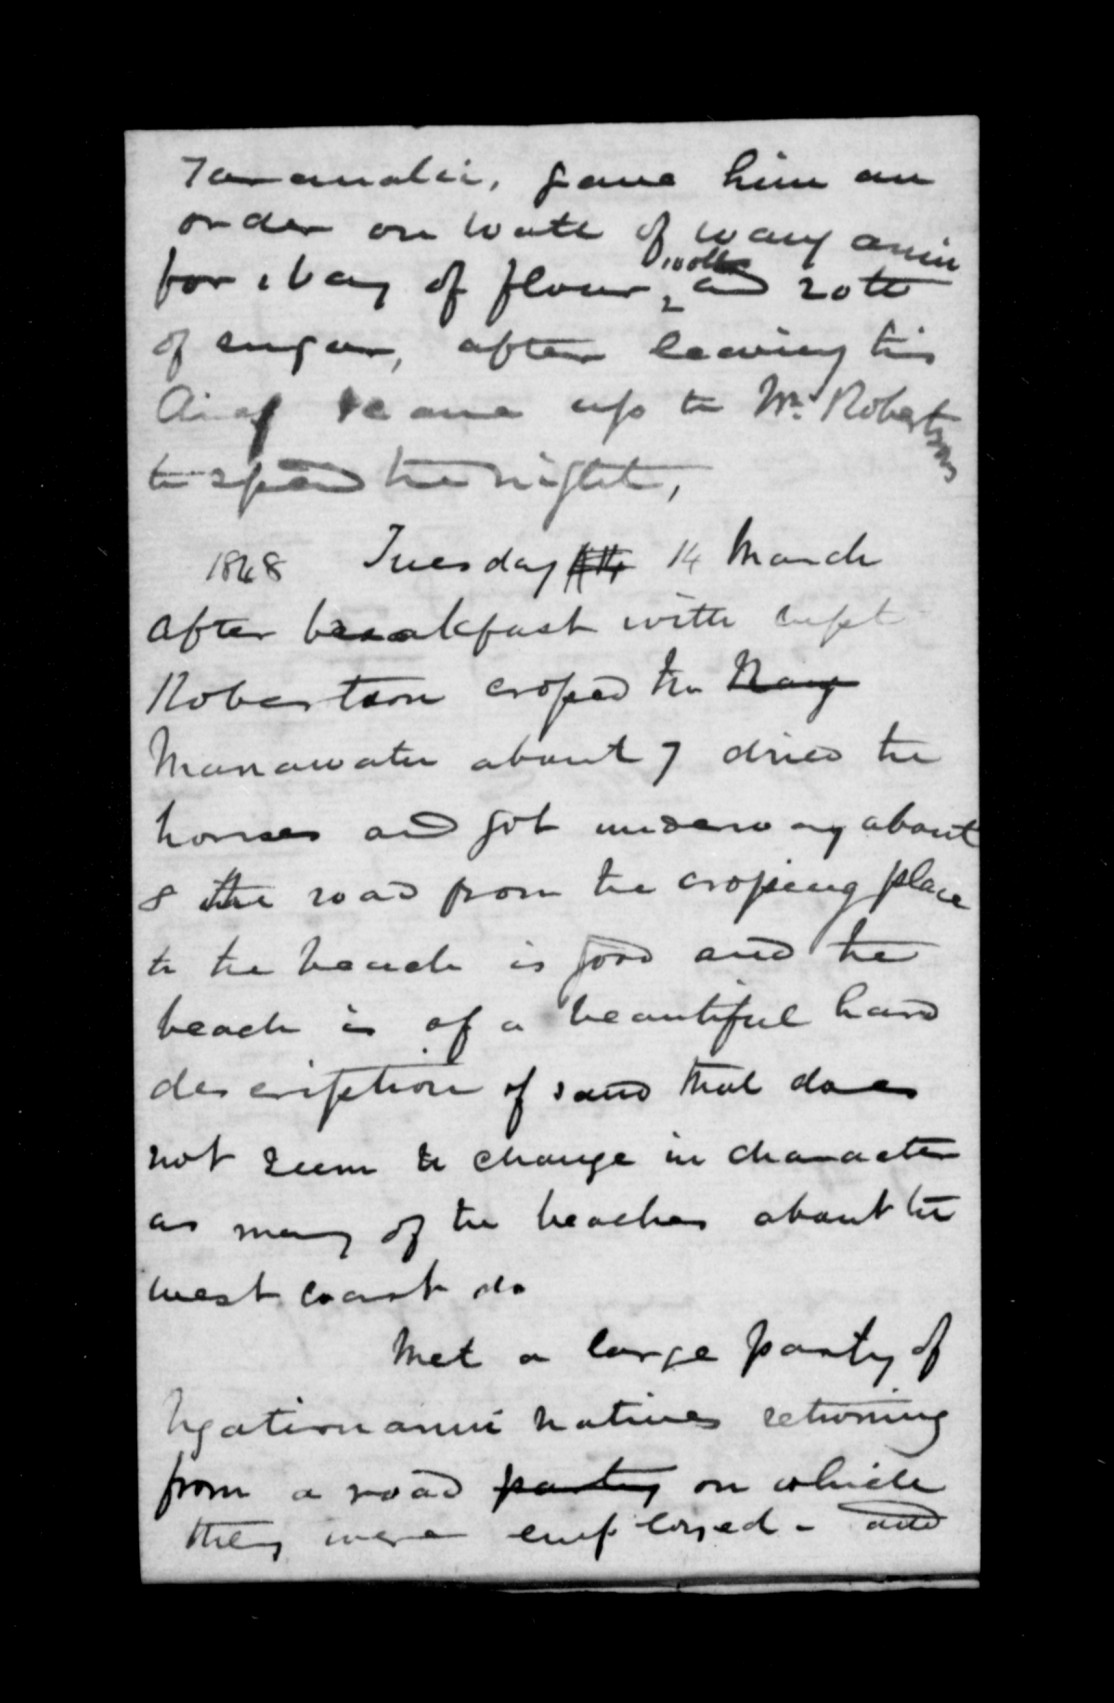 Taranakie, gave him an
order on Watt of Wanganui
for 1 bag of flour, and 20 lb
of sugar, after leaving this
came up to Mr. Robertsons
to spend the night,
1848 Tuesday 14 March
After breakfast with Capt
Robertson crosped the
Manawatu about 7 dried the
horses and got underway about
8 the road from the crosping place
to the beach is good and the
beach is of a beautiful hard
description of sand that does
not seem to change in character
as many of the beaches about the
west coast do
Met a large party of
natives returning
from a road party on which
they were employed - and